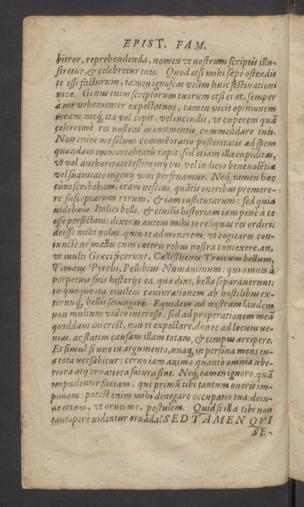 EPIST. FAM.
bitror, reprehendenda, nomen vt nostrum scriptis illu-
stretur, & celebretur tuis. Quod etsi mihi sæpe ostendis
te esse facturum, tamen ignoscas velim huic festinationi
meæ. Genus enim scriptorum tuorum etsi erat semper
à me vehementer expectatum, tamen vicit opinionem
meam, meq́; ita vel cepit, vel incendit, vt cuperem quàm
celerrimè res nostras monumentis commendari tuis.
Non enim me solum commemoratio posteritatis ad spem
quandam immortalitatis rapit, sed etiam illa cupiditas,
vt vel authoritate testimonij tui, vel indicio beneuolentiæ
vel suauitate ingenij viui perfruamur. Neq́; tamen hæc
cum scribebam, eram nescius, quātis oneribus premere-
re susceptarum rerum, & iam institutarum: sed quia
videbam Italici belli, & ciuilis historiam iam penè à te
esse perfectam: dixeras autem mihi te reliquas res ordiri:
deesse mihi nolui, quin te admonerem, vt cogitares con-
iunctè ne malles cum cæteris rebus nostra contexere, an,
vt multi Græci fecerunt, Callisthenes Troicum bellum,
Timæus Pyrrhi, Polibius Numantinum: qui omnes à
perpetuis suis historijs ea, quæ dixi, bella separauerunt:
tu quoque ita ciuilem coniurationem ab hostilibus ex-
ternisq́; bellis seiungere. Equidem ad nostram laudem
non multum video interesse: sed ad properationem meā
quiddam interest, non te expectare, donec ad locum ve-
nias, ac statim causam illam totam, & tempus arripere.
Et simul si vno in argumento, vnaq́; in persona mens tua
tota versabitur: cerno iam animo, quantò omnia vbe-
riora atq; ornatiora futura sint. Neq́; tamen ignoro, quā
impudenter faciam, qui primū tibi tantum oneris im-
ponam: potest enim mihi denegare occupatio tua: dein-
de etiam, vt ornes me, postulem. Quid si illa tibi non
tantopere videntur ornāda? SED TAMEN QVI
SE-